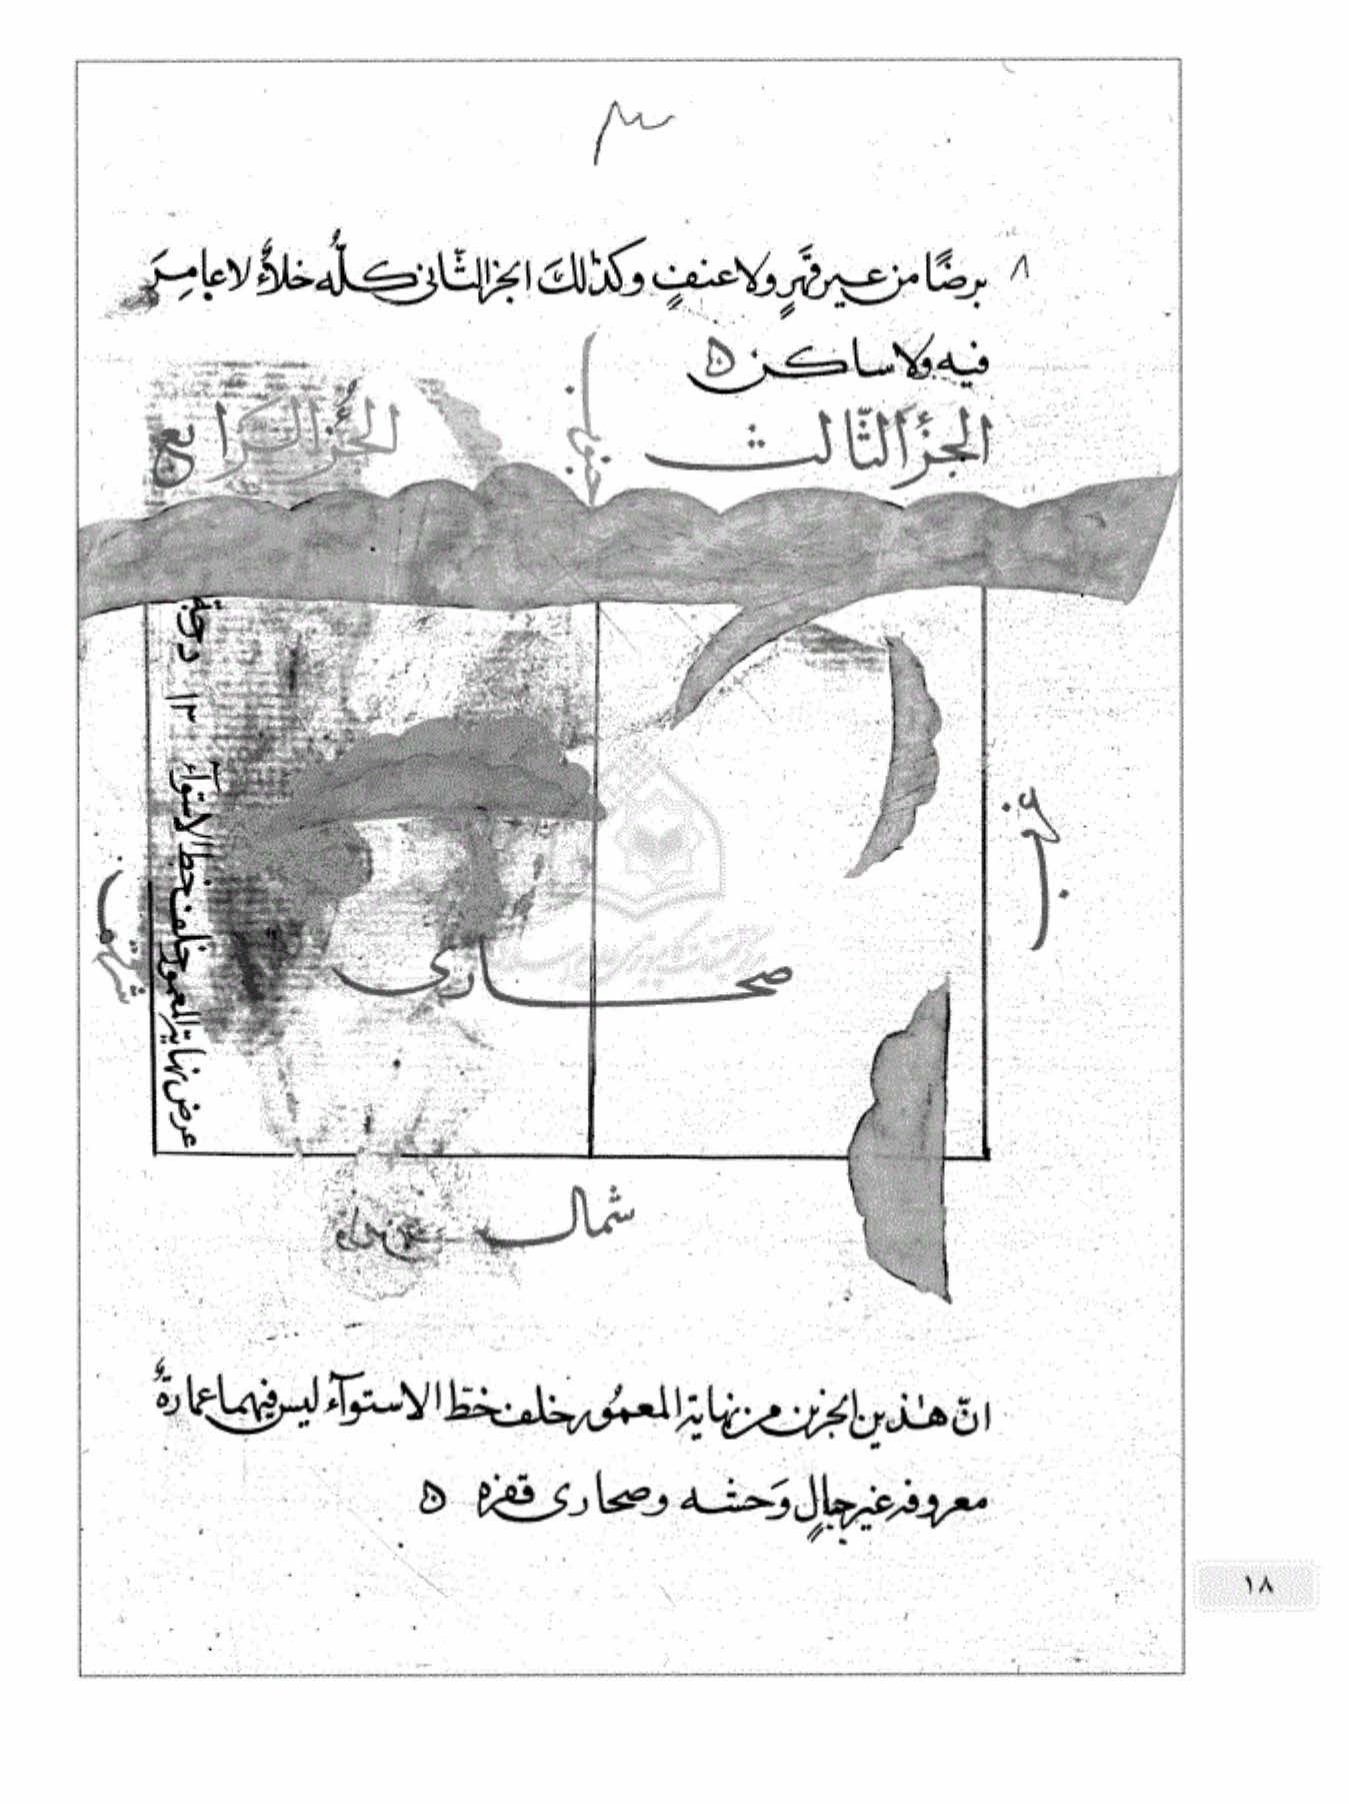 ٣
٨ برضًا من غير قهرٍ ولا عنفٍ وكذلك الجز الثّانى كلّه خلاءٌ لا عامِرَ
فيه ولا ساكن ه
الجزء الثّالث
جنوب
الجزء الرابع
غرب
صحارى
شرق
عرض نهاية المعمور خلف خط الاستوآء ١٣ درجة
شمال
انّ هذين الجزين من نهاية المعمُور خلف خطّ الاستوآء ليس فيهما عمارةٌ
معروفه غير جبالٍ وَحشه وصحارى قفره ه
١٨